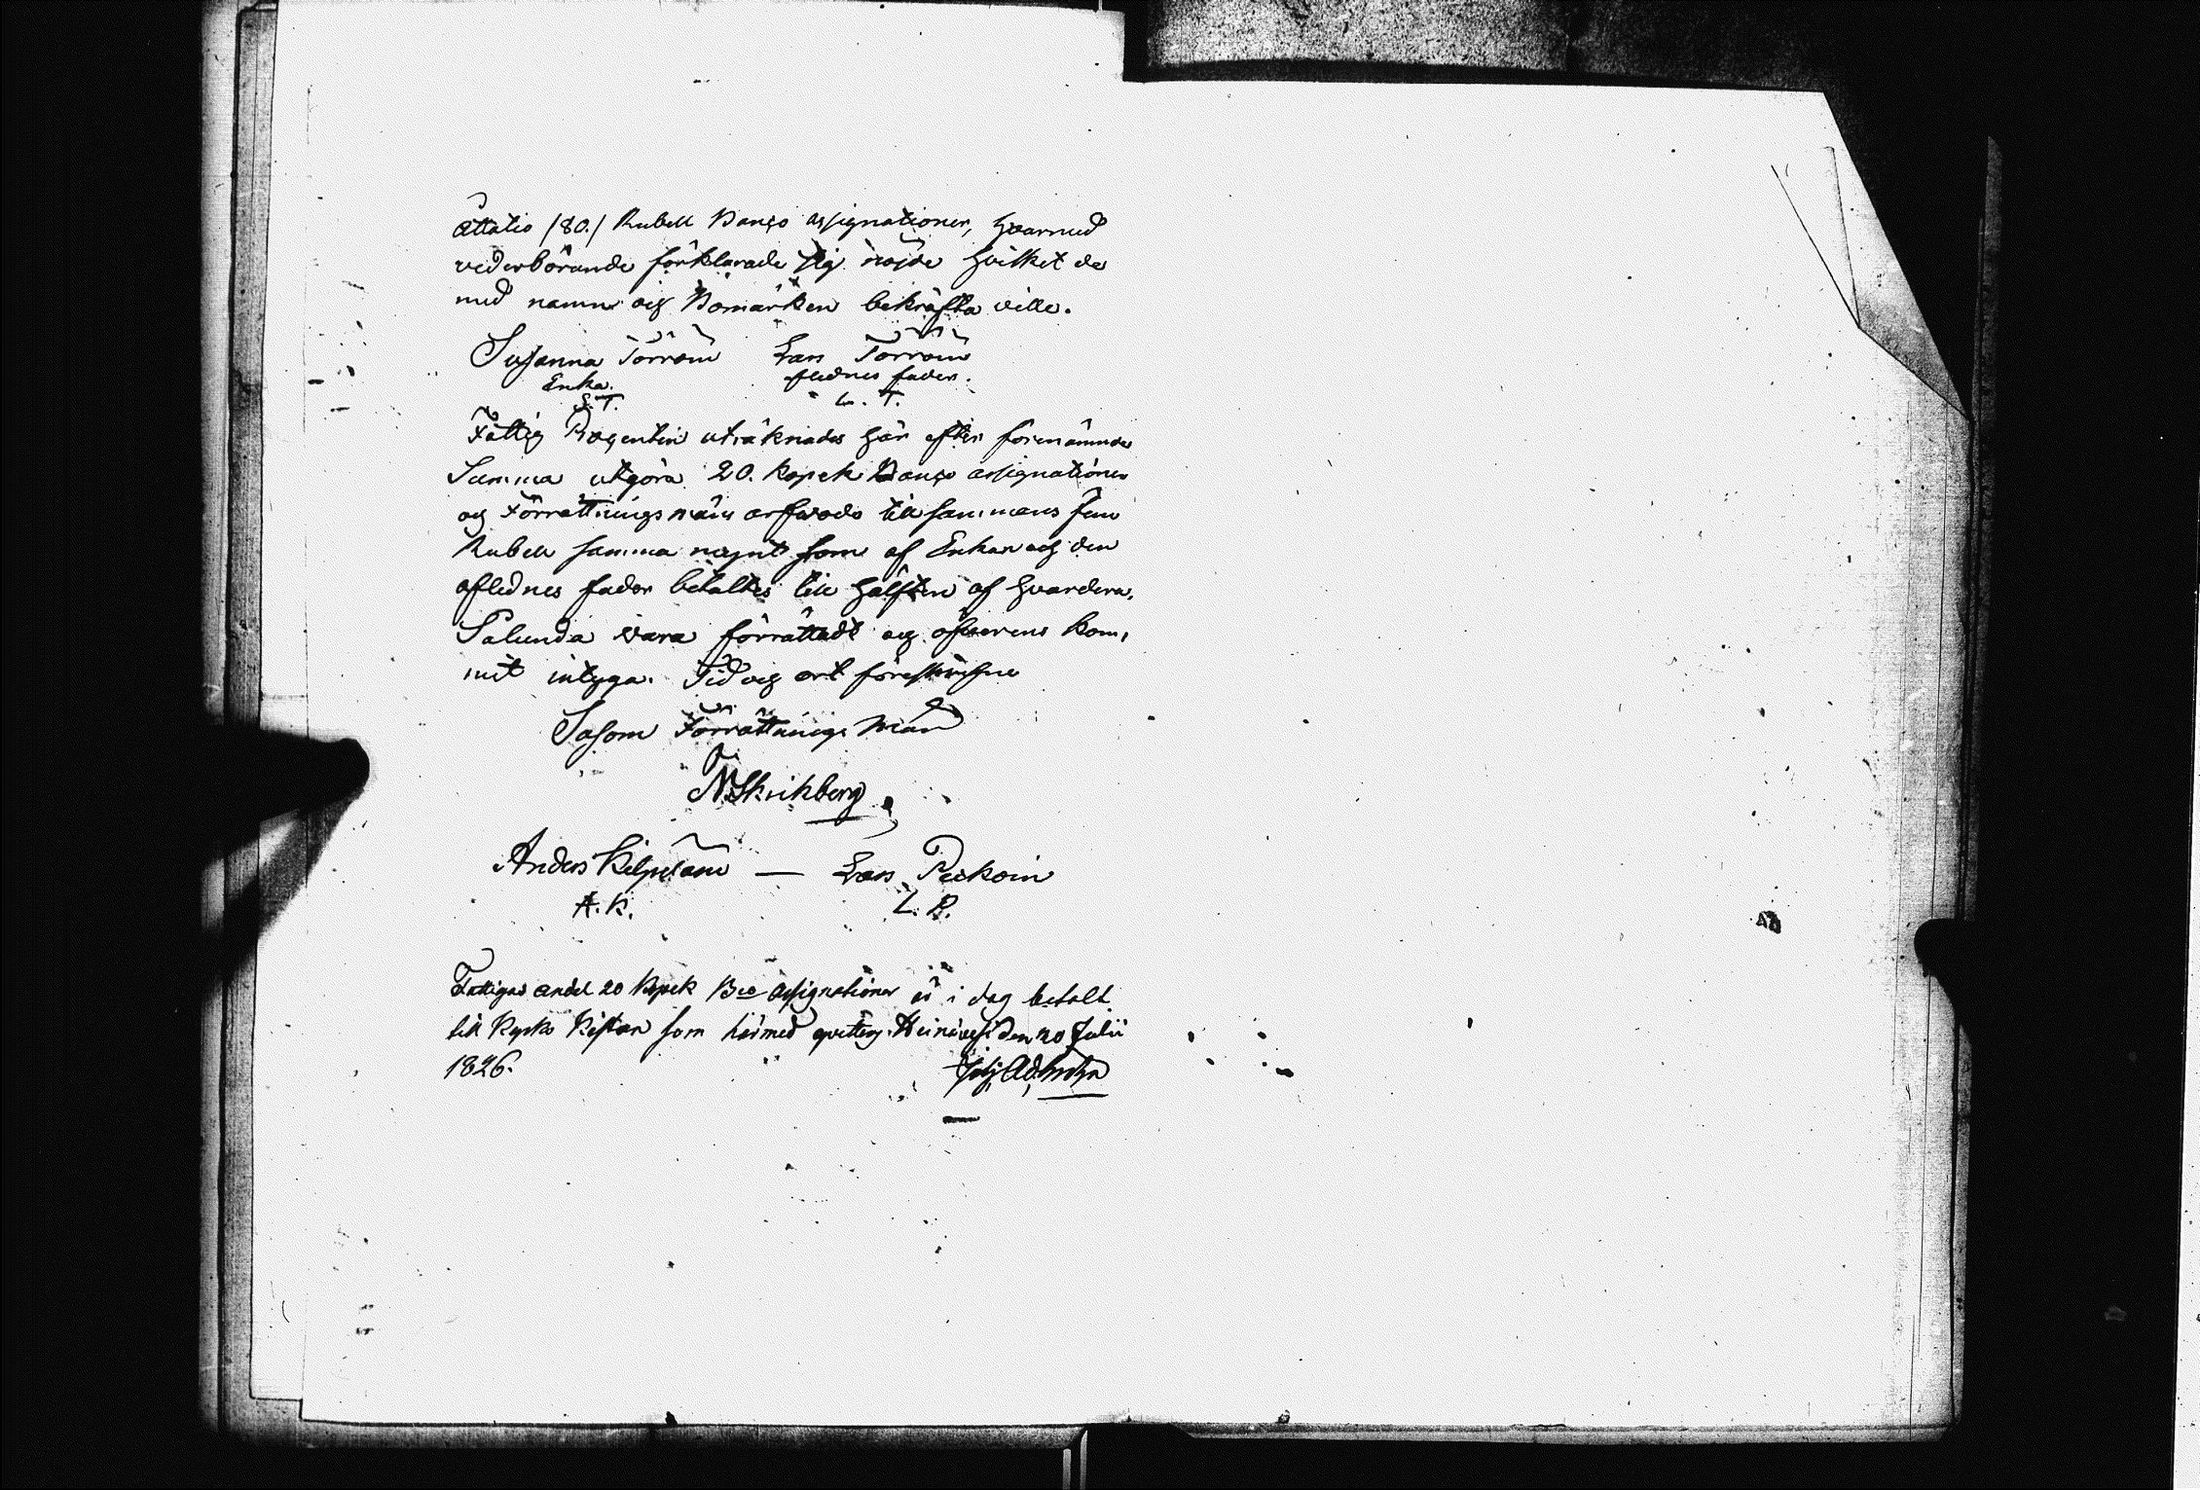 åttatio /80./ Rubell Banco assignationer, hvarmed
vederbörande förklarade sig nöjde hvilket de
med namn och Bomärken bekräfta ville.
Susanna Törröin Lars Törröin
Enka. aflednes fader.
S. T. L. T.
Fattig Procenten uträknades här efter förenämnde
Summa utgöra 20. Kopek Banco assignationer
och Förrättnings män arfvode tillsammans fem
Rubell samma mynt som af Enkan och den
aflednes fader betaltes till hälften af hvardera.
Sålunda vara förrättadt och öfverens kom,
mit intyga. Tid och ort föreskrifne
Såsom Förrättnings Män
Anders Kilpeläin — Lars
A. K. L. P.
Fattigas andel 20 Kopek Bco Assignationer är i dag betalt
till Kyrko Kistan som härmed qvitterj. Heinävesi den 20 Julii
1826.